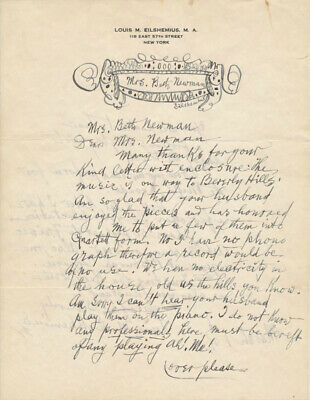 LOUIS M. EILSHEMIUS, M. A.
118 EAST 57TH STREET
NEW YORK
Mrs. Beth Newman
Eilshemius
Mrs. Beth Newman
Dear Mrs. Newman
Many thanks for your
kind letter with enclosure. The
music is on way to Beverly Hills.
Am so glad that your husband
enjoyed the pieces and has honored
me to put a few of them into
Quartet form. No I have no phono
graph therefore a record would be
of no use! We have no electricity in
the house, old as the hills you know.
Am sorry I can't hear your husband
play them on the piano. I do not know
any professional here, must be bereft
of any playing Ah! Me!
(over please